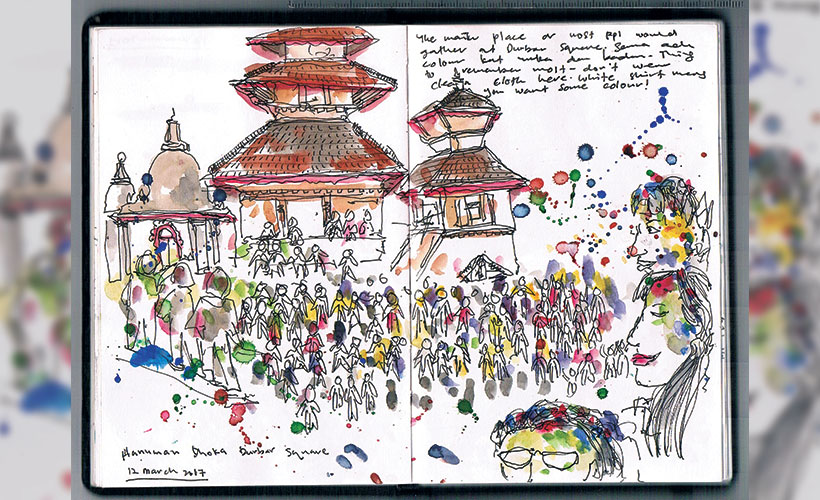 The main place or most ppl would
gather at Durbar Square. Semua ada
colour kat muka dan badan. Thing
to remember most - don't wear
clean cloth here. White shirt means
you want some colour!
Hanuman Dhoka Durbar Square
12 march 2017